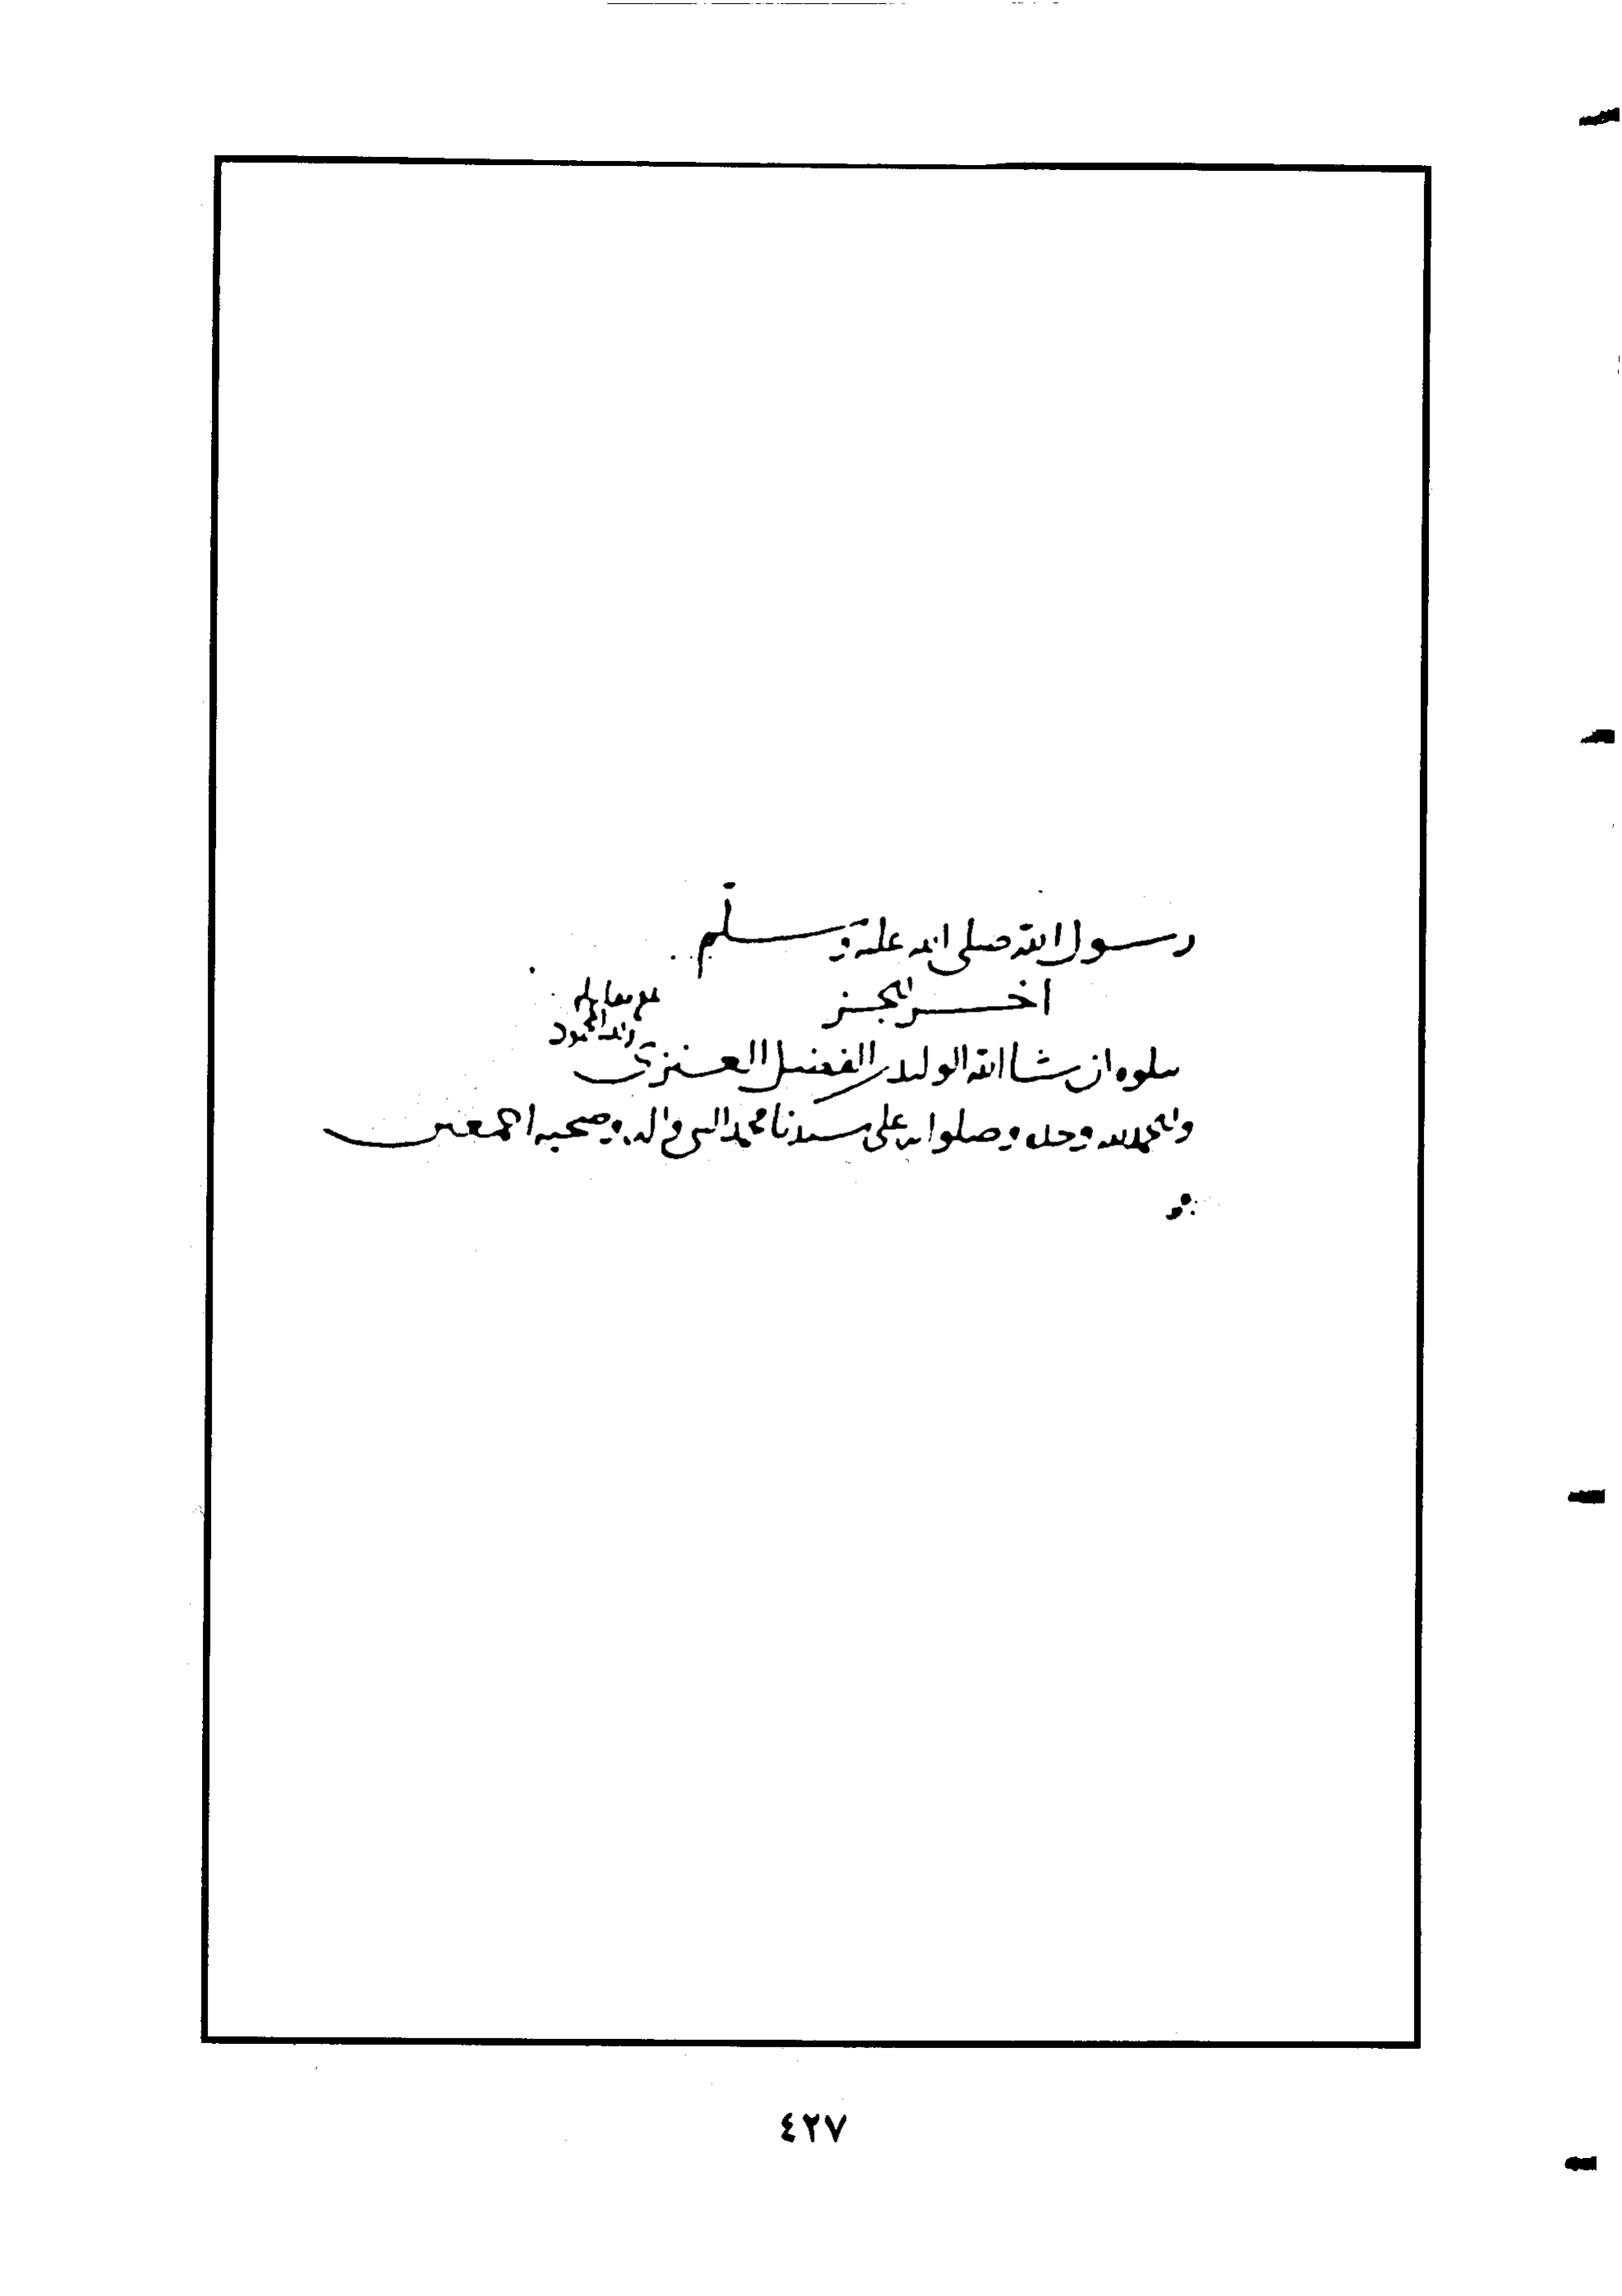 رسول الله صلى الله عليه وسلم
آخر الجز
يتلوه ان شا الله الوليد بن الفضل العنزي
والحمد لله وحده وصلواته على سيدنا محمد النبي واله وصحبه اجمعين
٤٢٧